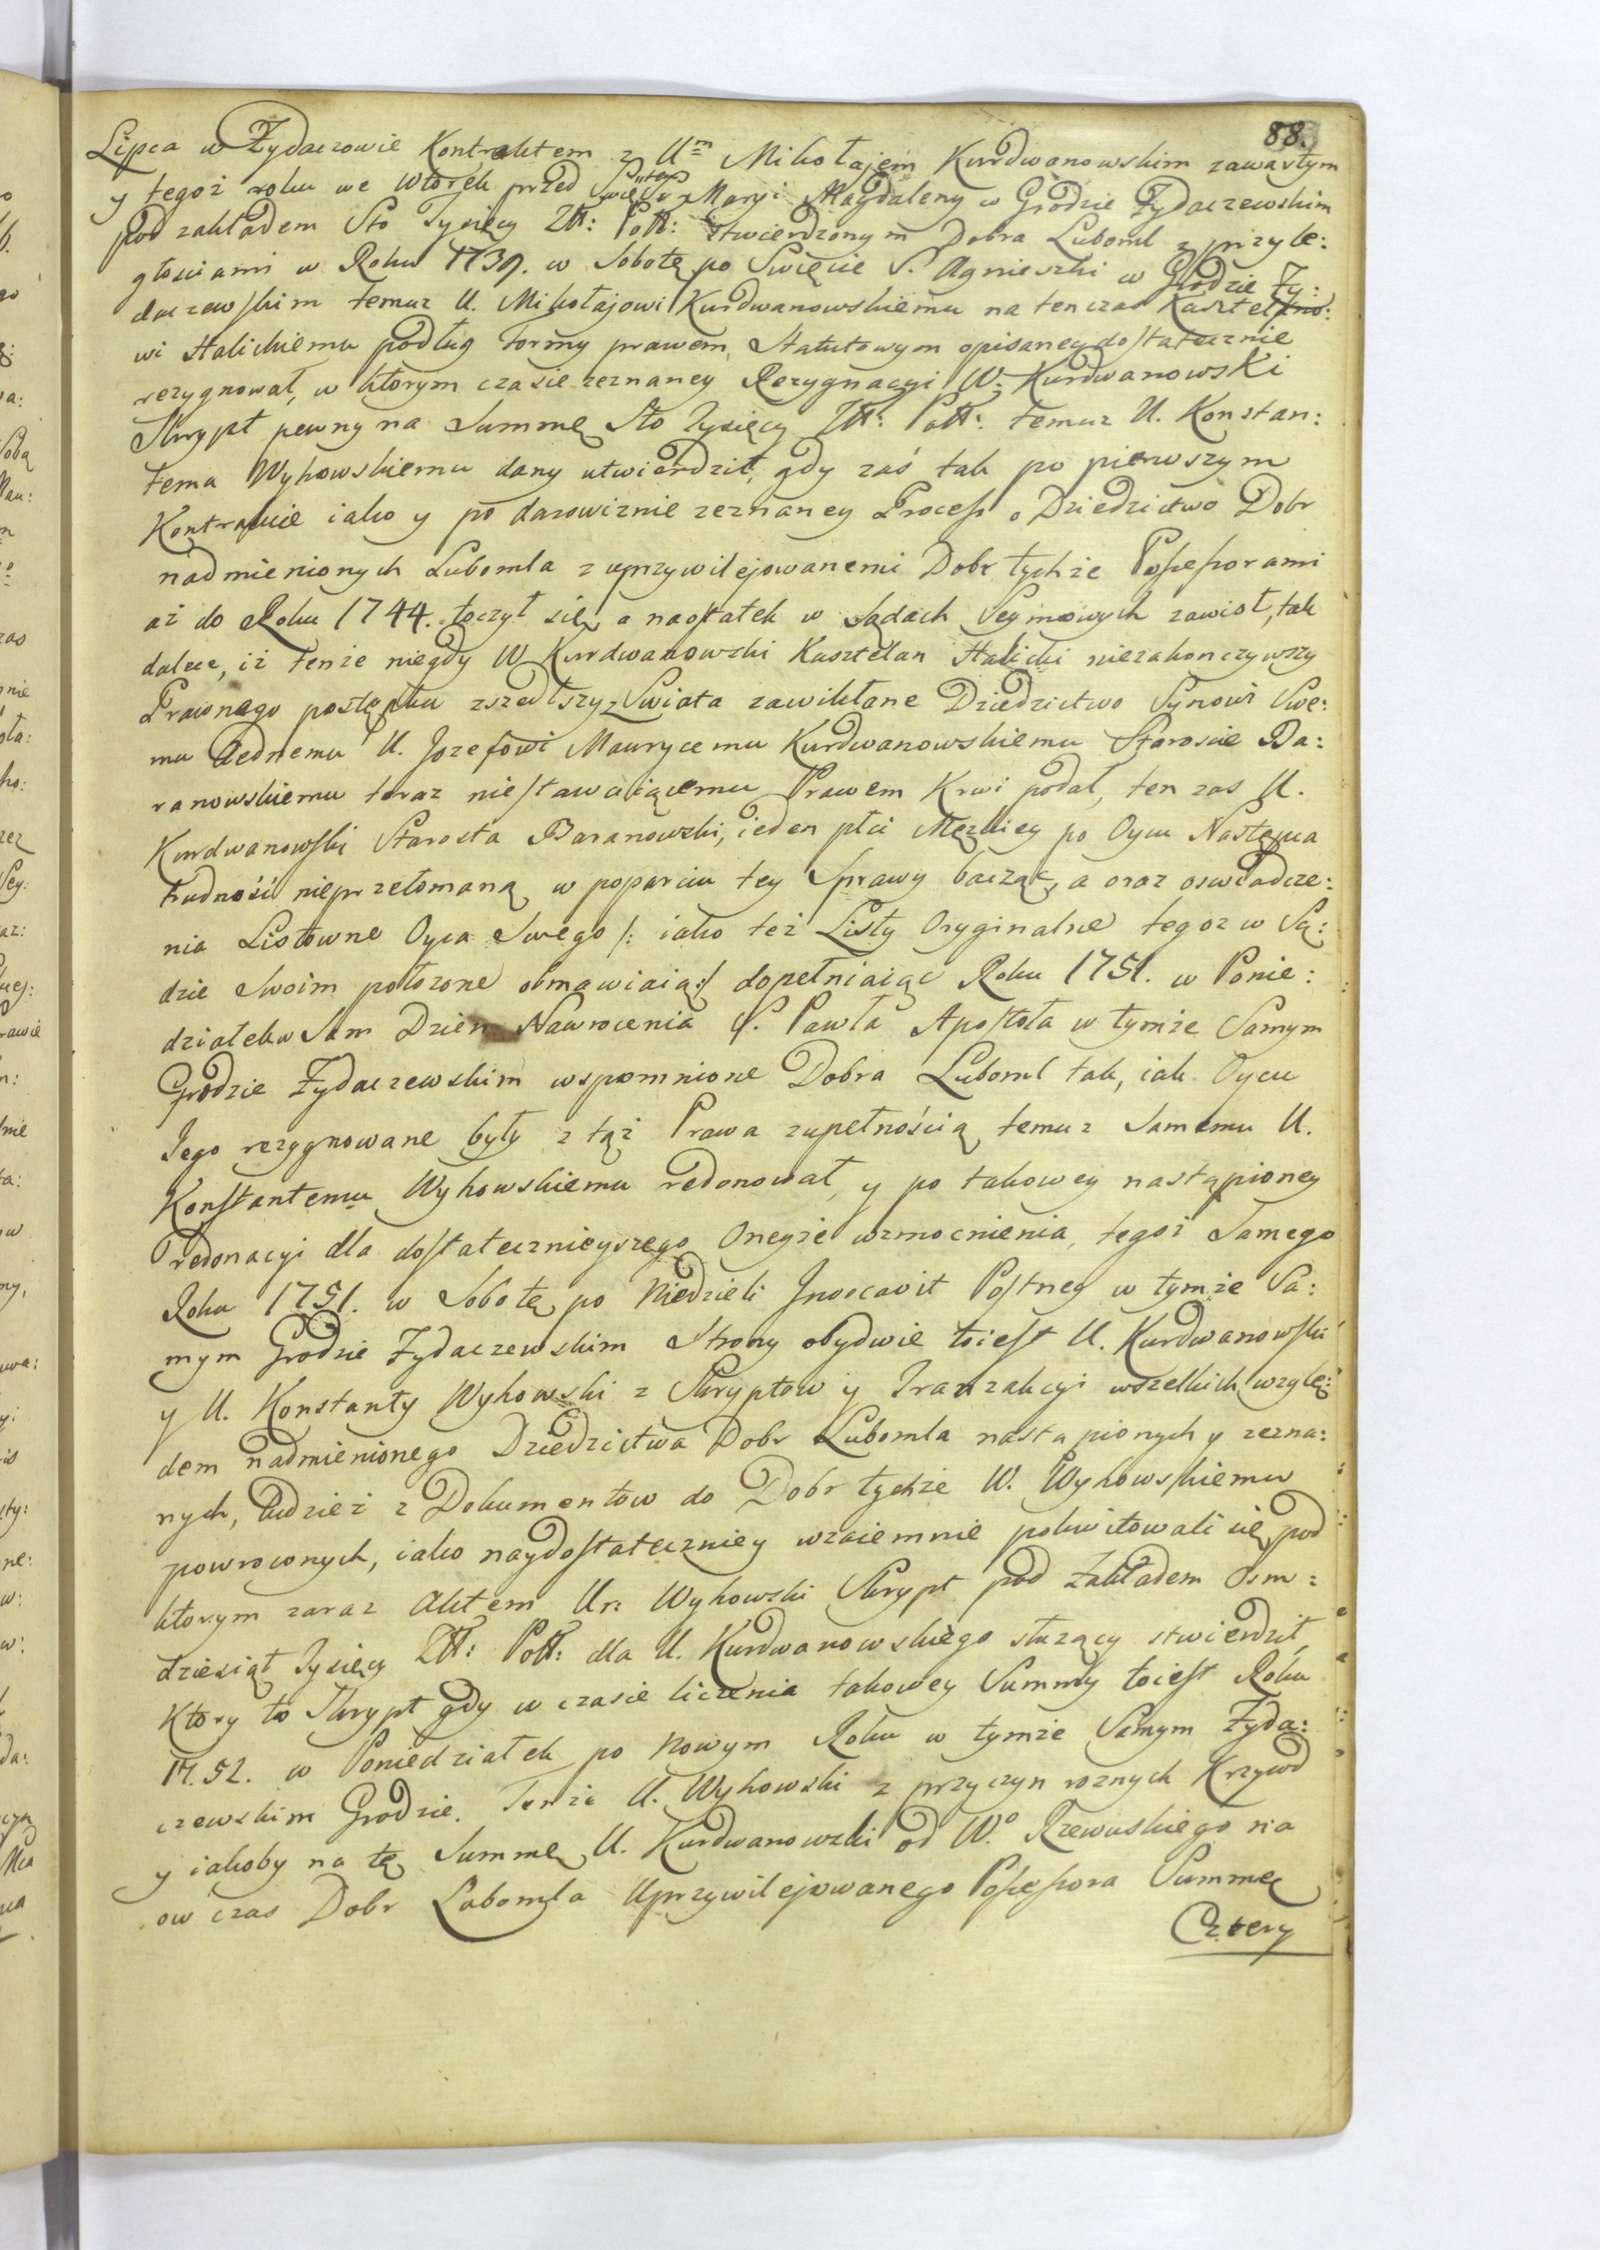 88.
Lipca w Zydaczowie Kontraktem z Um Mikołajem Kurdwanowskim zawartym
y tegoż roku we Wtorek przed Swięty Maryi Magdaleny w Grodzie Zydaczewskim
pod zakładem Sto Tysięcy Złł: Poll: stwierdzonym Dobra Luboml z przyle:
głosciami w Roku 1739. w Sobotę po Swięcie S. Agnieszki w Grodzie Zy:
daczewskim temuz U. Mikołajowi Kurdwanowskiemu na ten czas Kasztelano:
wi Halickiemu podług formy prawem Statutowym opisaney dostatecznie
rezygnował, w ktorym czasie zeznaney Rezygnacyi W. Kurdwanowski
Skrypt pewny na Summę Sto Tysięcy Złł: Poll: temuz U. Konstan:
temu Wyhowskiemu dany utwierdził, gdy zaś tak po pierwszym
Kontrakcie iako y po darowiznie zeznaney Process o Dziedzictwo Dobr
nadmienionych Lubomla z uprzywilejowanemi Dobr tychże Possessorami
aż do Roku 1744. toczył się, a naostatek w Sądach Seymowych zawisł, tak
dalece, iż tenże niegdy W Kurdwanowski Kasztelan Halicki niezakonczywszy
Prawnego postępku zszedłszy z Swiata zawikłane Dziedzictwo Synowi Swe:
mu Jednemu U. Jozefowi Maurycemu Kurdwanowskiemu Staroscie Ba:
ranowskiemu teraz niestawaiącemu Prawem Krwi podał, ten zas U.
Kurdwanowski Starosta Baranowski, ieden płci Męzkiey po Oycu Następca
trudność nieprzełomaną w poparciu tey Sprawy bacząc, a oraz oswiadcze:
nia Listowne Oyca Swego /: iako też Listy Oryginalne tegoz w Są:
dzie Swoim położone obmawiaią :/ dopełniaiąc Roku 1751. w Ponie:
działek w Sam Dzien Nawrocenia S. Pawła Apostoła w tymże Samym
Grodzie Zydaczewskim wspomnione Dobra Luboml tak, iak Oycu
Jego rezygnowane były z tąż Prawa zupełnością temuz Samemu U.
Konstantemu Wyhowskiemu redonował, y po takowey nastąpioney
redonacyi dla dostatecznieyszego Oneyże wzmocnienia, tegoż Samego
Roku 1751. w Sobotę po Niedzieli Invocavit Postney w tymże Sa:
mym Grodzie Zydaczewskim Strony obydwie toiest U. Kurdwanowski
y U. Konstanty Wyhowski z Skryptow y Tranzakcyi wszelkich wzglę:
dem nadmienionego Dziedzictwa Dobr Lubomla nastąpionych y zezna:
nych, tudzież z Dokumentow do Dobr tychże W. Wyhowskiemu
powroconych, iako naydostateczniey wzaiemnie pokwitowali się, pod
ktorym zaraz Aktem Ur: Wyhowski Skrypt pod Zakładem Osm:
dziesiąt Tysięcy Złł: Poll: dla U. Kurdwanowskiego służący stwierdził,
Ktory to Skrypt gdy w czasie liczenia takowey Summy toiest Roku
17.52. w Poniedziałek po Nowym Roku w tymże Samym Zyda:
czewskim Grodzie. Tenże U. Wyhowski z przyczyn roznych Krzywd
y iakoby na tę Summę U. Kurdwanowski od Wo Rzewuskiego na
ow czas Dobr Lubomla Uprzywilejowanego Possessora Summę
Cztery